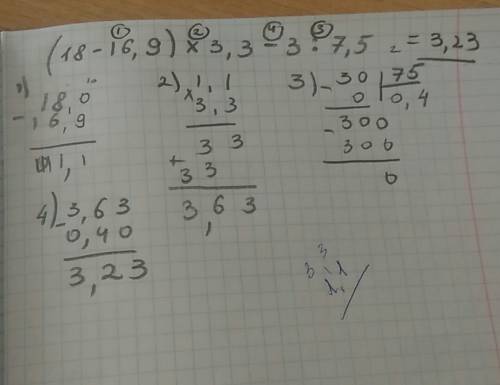 ① ② ④ ③
(18 - 16,9) × 3,3 - 3 : 7,5 = 3,23
1) 18,0
- 16,9
1,1
2) 1,1
× 3,3
3 3
+ 3 3
3,6 3
3) - 30 | 75
0 | 0,4
- 300
300
0
4) - 3,63
0,40
3,23